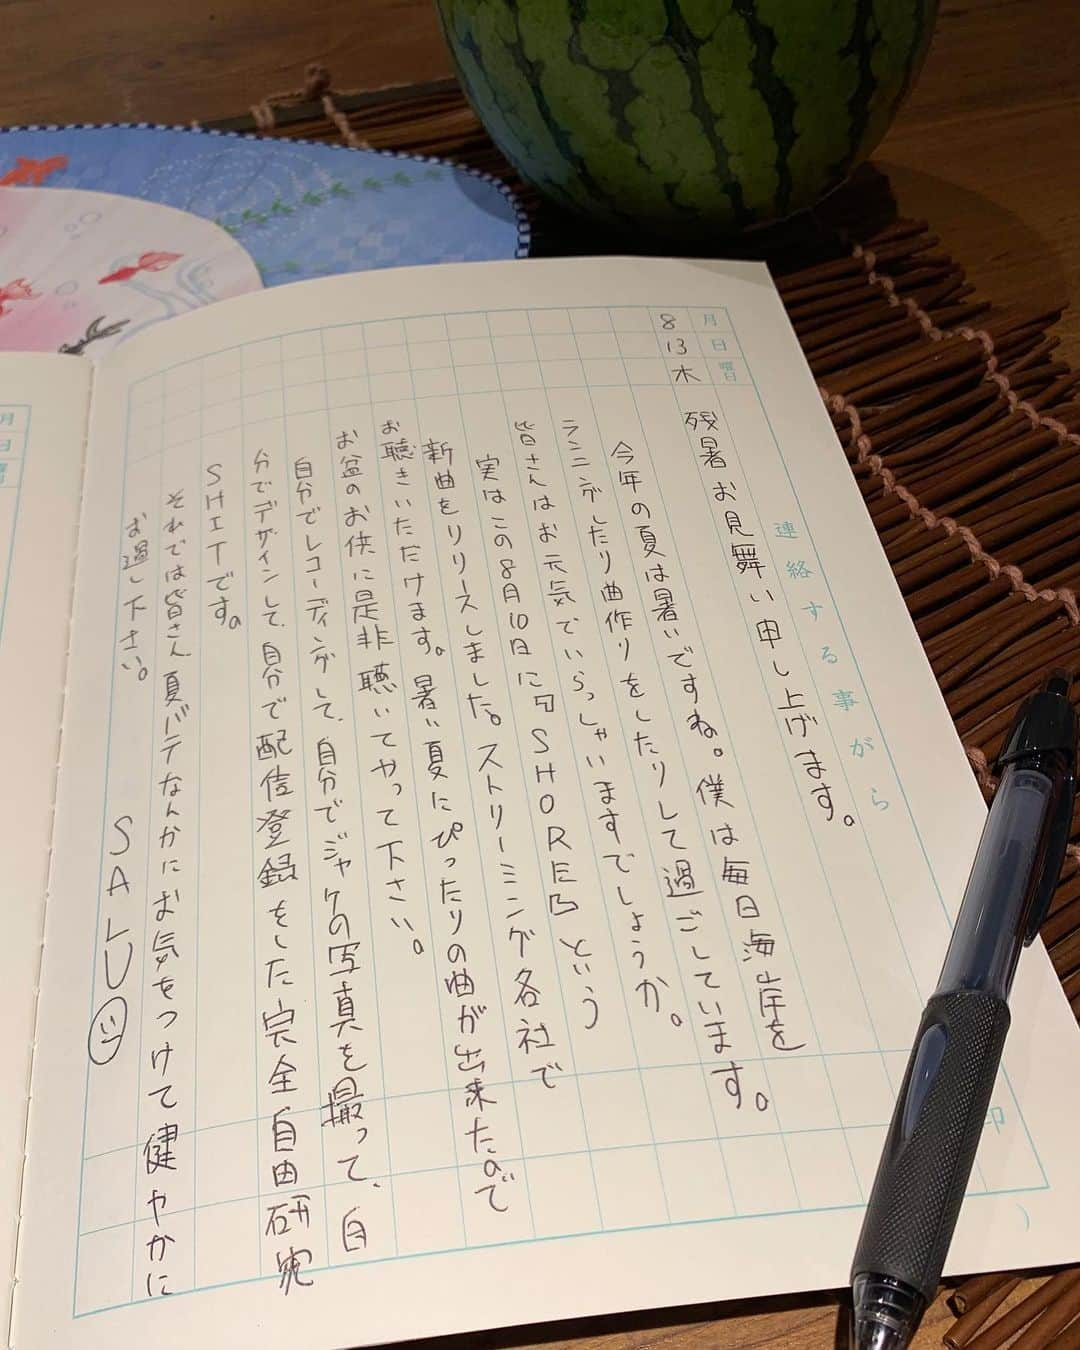 月日曜
8 13 木
連絡する事がら
残暑お見舞い申し上げます。
今年の夏は暑いですね。僕は毎日海岸を
ランニングしたり曲作りをしたりして過ごしています。
皆さんはお元気でいらっしゃいますでしょうか。
実はこの8月10日に SHOREという
新曲をリリースしました。ストリーミング各社で
お聴きいただけます。暑い夏にぴったりの曲が出来たので
お盆のお供に是非聴いてやって下さい。
自分でレコーディングして、自分でジャケの写真を撮って、自
分でデザインして、自分で配信登録をした完全自由研究
SHITです。
それでは皆さん夏バテなんかにお気をつけて健やかに
お過し下さい。
SALU
印
)
月
日
曜